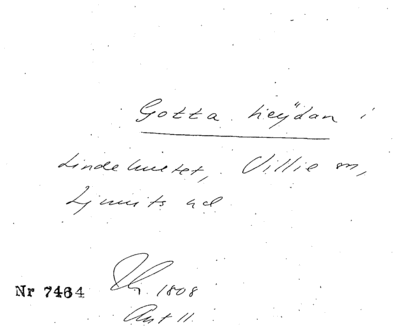 Gotta heÿdan i
Lindehuset, Villie sn,
Ljunits hd
Nr 7464
1808
Ant 11